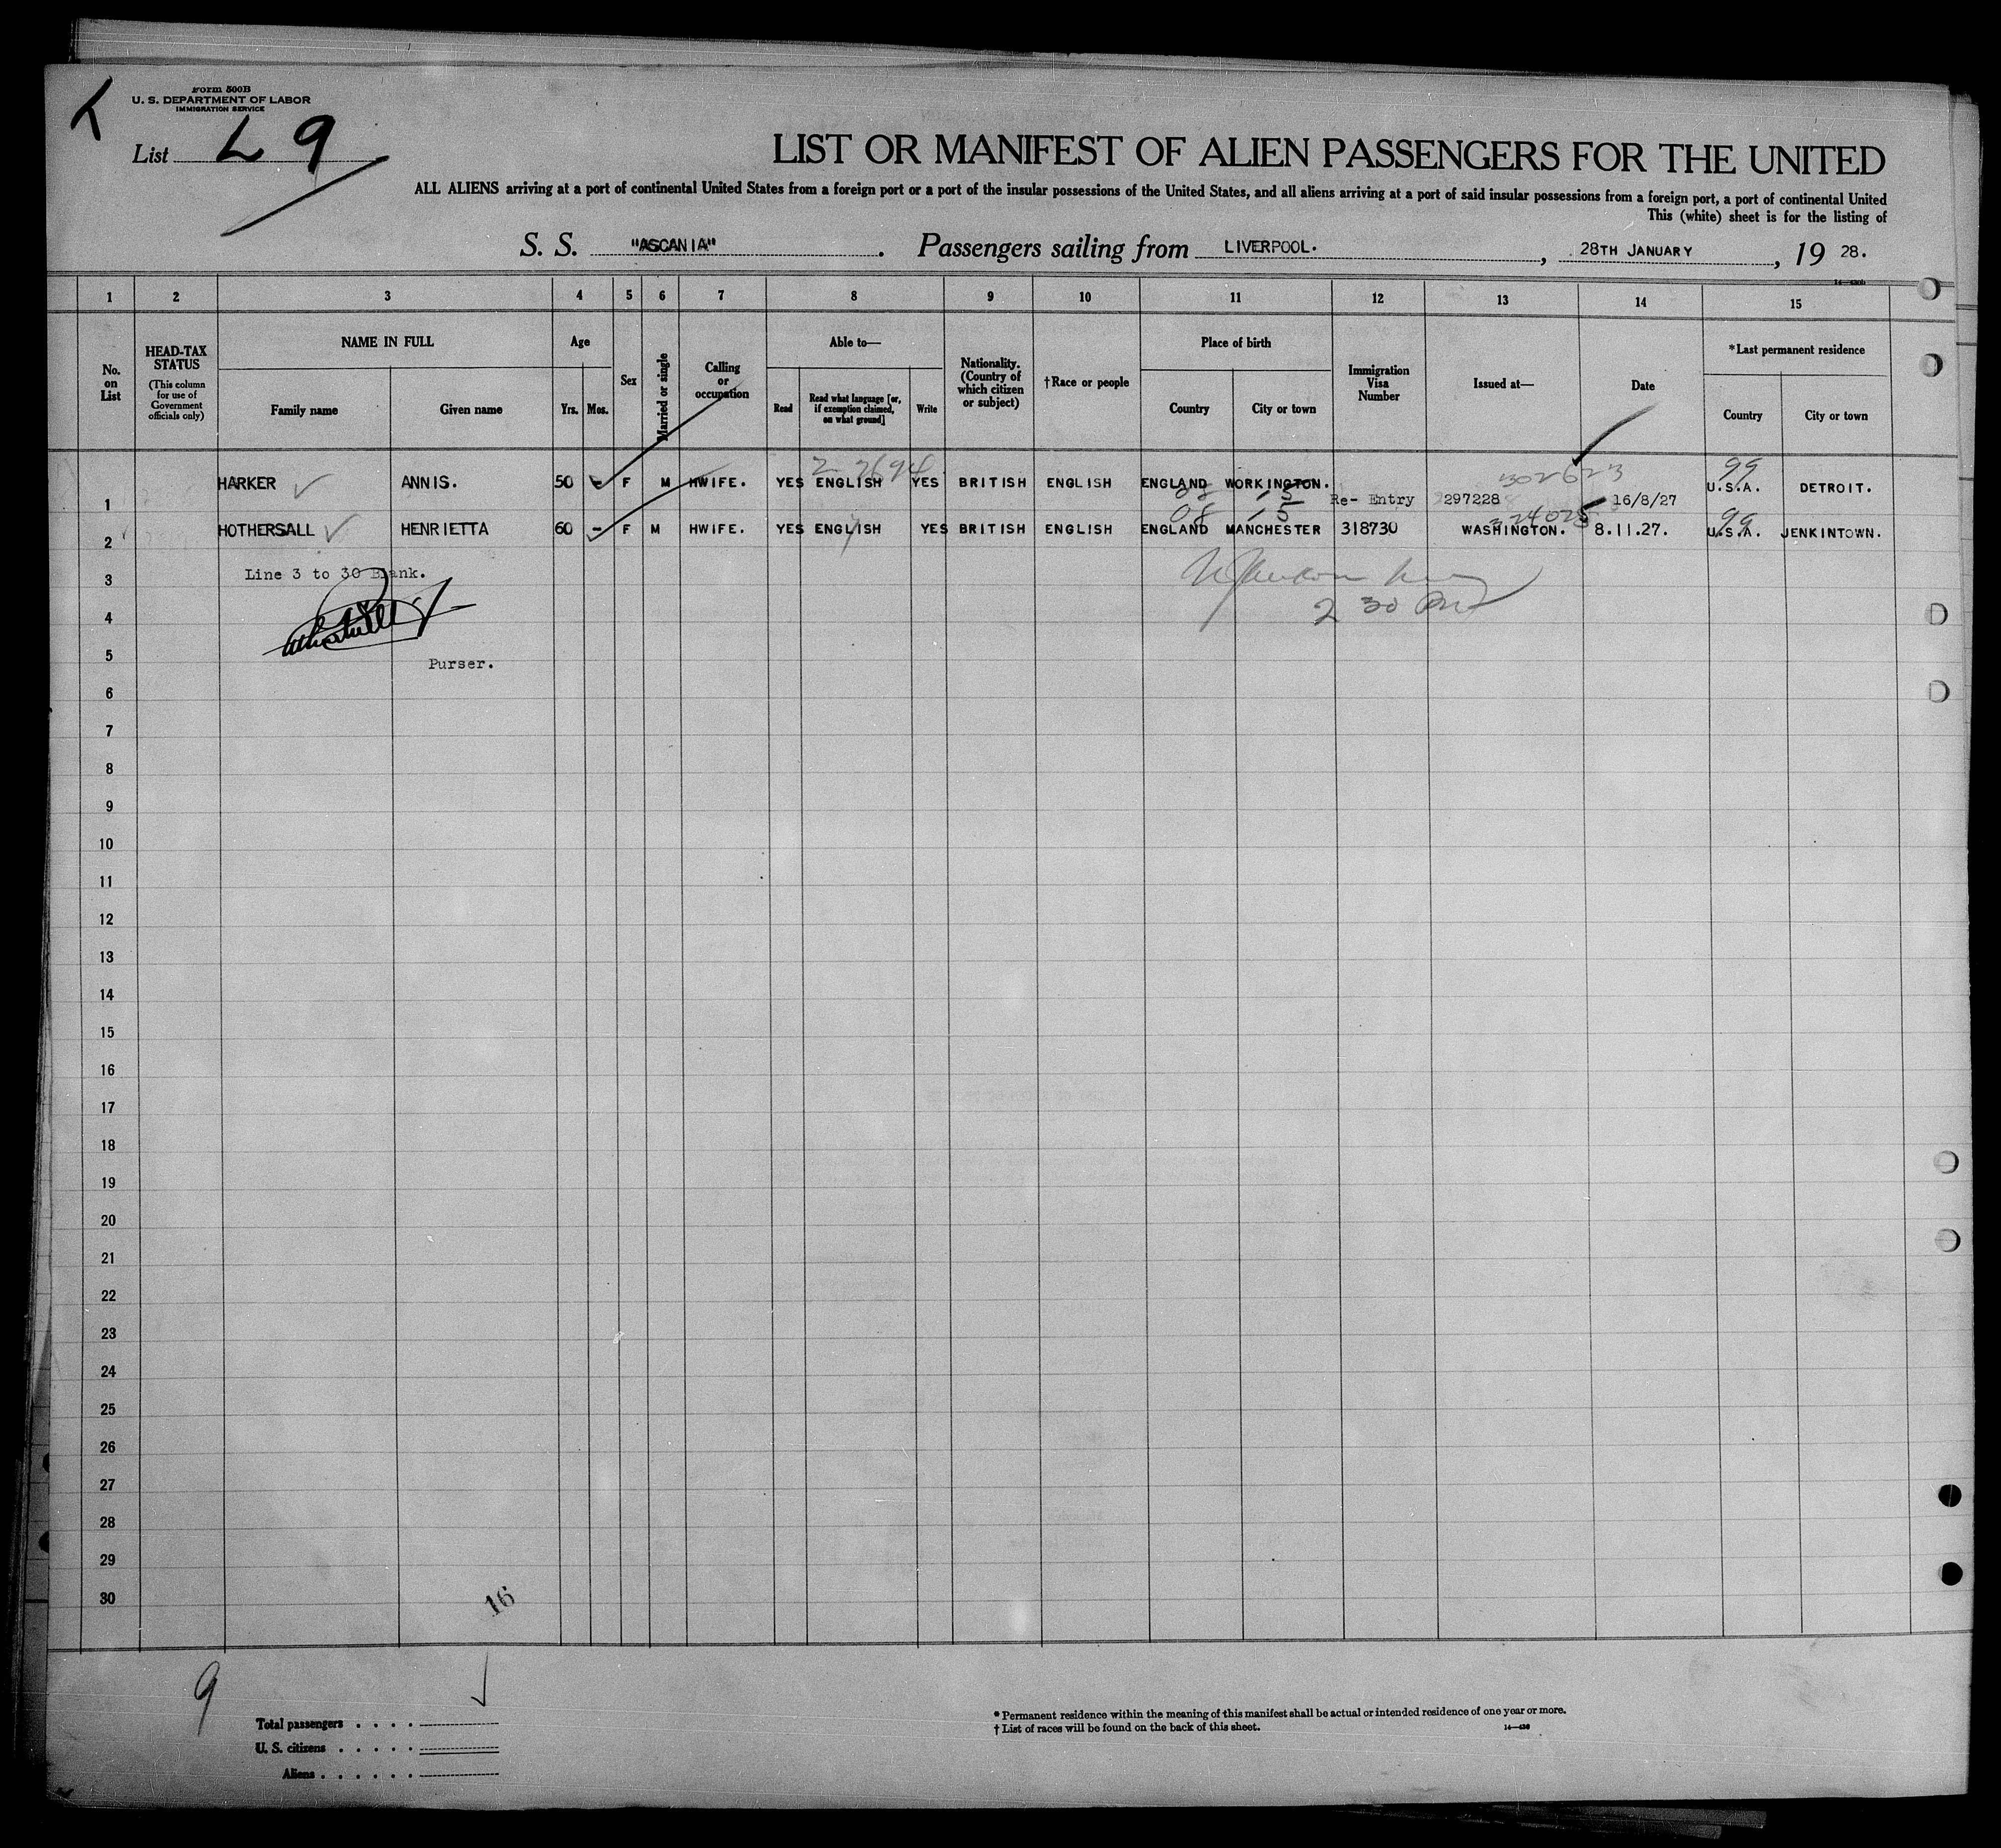 Form 500B
U. S. DEPARTMENT OF LABOR
IMMIGRATION SERVICE
List L 9
LIST OR MANIFEST OF ALIEN PASSENGERS FOR THE UNITED
ALL ALIENS arriving at a port of continental United States from a foreign port or a port of the insular possessions of the United States, and all aliens arriving at a port of said insular possessions from a foreign port, a port of continental United
This (white) sheet is for the listing of
S. S. "ASCANIA". Passengers sailing from LIVERPOOL., 28TH JANUARY, 19 28.
1 2 3 4 5 6 7 8 9 10 11 12 13 14 15
No. on List
HEAD-TAX STATUS (This column for use of Government officials only)
NAME IN FULL
Family name Given name
Age
Yrs. Mos.
Sex
Married or single
Calling or occupation
Able to—
Read Read what language [or, if exemption claimed, on what ground] Write
Nationality. (Country of which citizen or subject)
†Race or people
Place of birth
Country City or town
Immigration Visa Number
Issued at—
Date
*Last permanent residence
Country City or town
2 2694 302623 99
1 HARKER ANNIS. 50 - F M HWIFE. YES ENGLISH YES BRITISH ENGLISH ENGLAND WORKINGTON. Re- Entry 297228 16/8/27 U.S.A. DETROIT.
08 15 324025 99
2 HOTHERSALL HENRIETTA 60 - F M HWIFE. YES ENGLISH YES BRITISH ENGLISH ENGLAND MANCHESTER 318730 WASHINGTON. 8.11.27. U.S.A. JENKINTOWN.
3 Line 3 to 30 Blank.
4 2 30 PM
5 Purser.
6
7
8
9
10
11
12
13
14
15
16
17
18
19
20
21
22
23
24
25
26
27
28
29
30
16
9
Total passengers
U. S. citizens
Aliens
* Permanent residence within the meaning of this manifest shall be actual or intended residence of one year or more.
† List of races will be found on the back of this sheet.